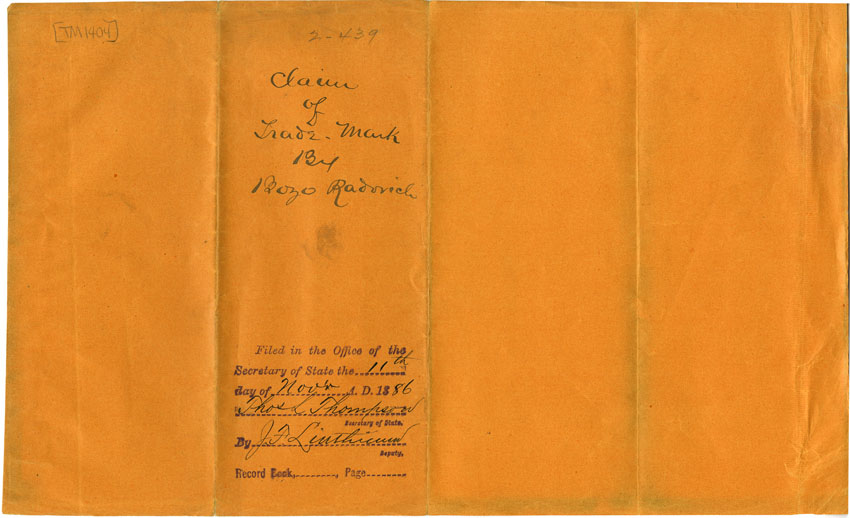 [TM1404]
2-439
Claim
of
Trade-Mark
By
Bozo Radovich
Filed in the Office of the
Secretary of State the 11th
day of Novr A. D. 1886
Thos L Thompson
Secretary of State.
By J. F. Linthicum
Deputy.
Record Book, , Page